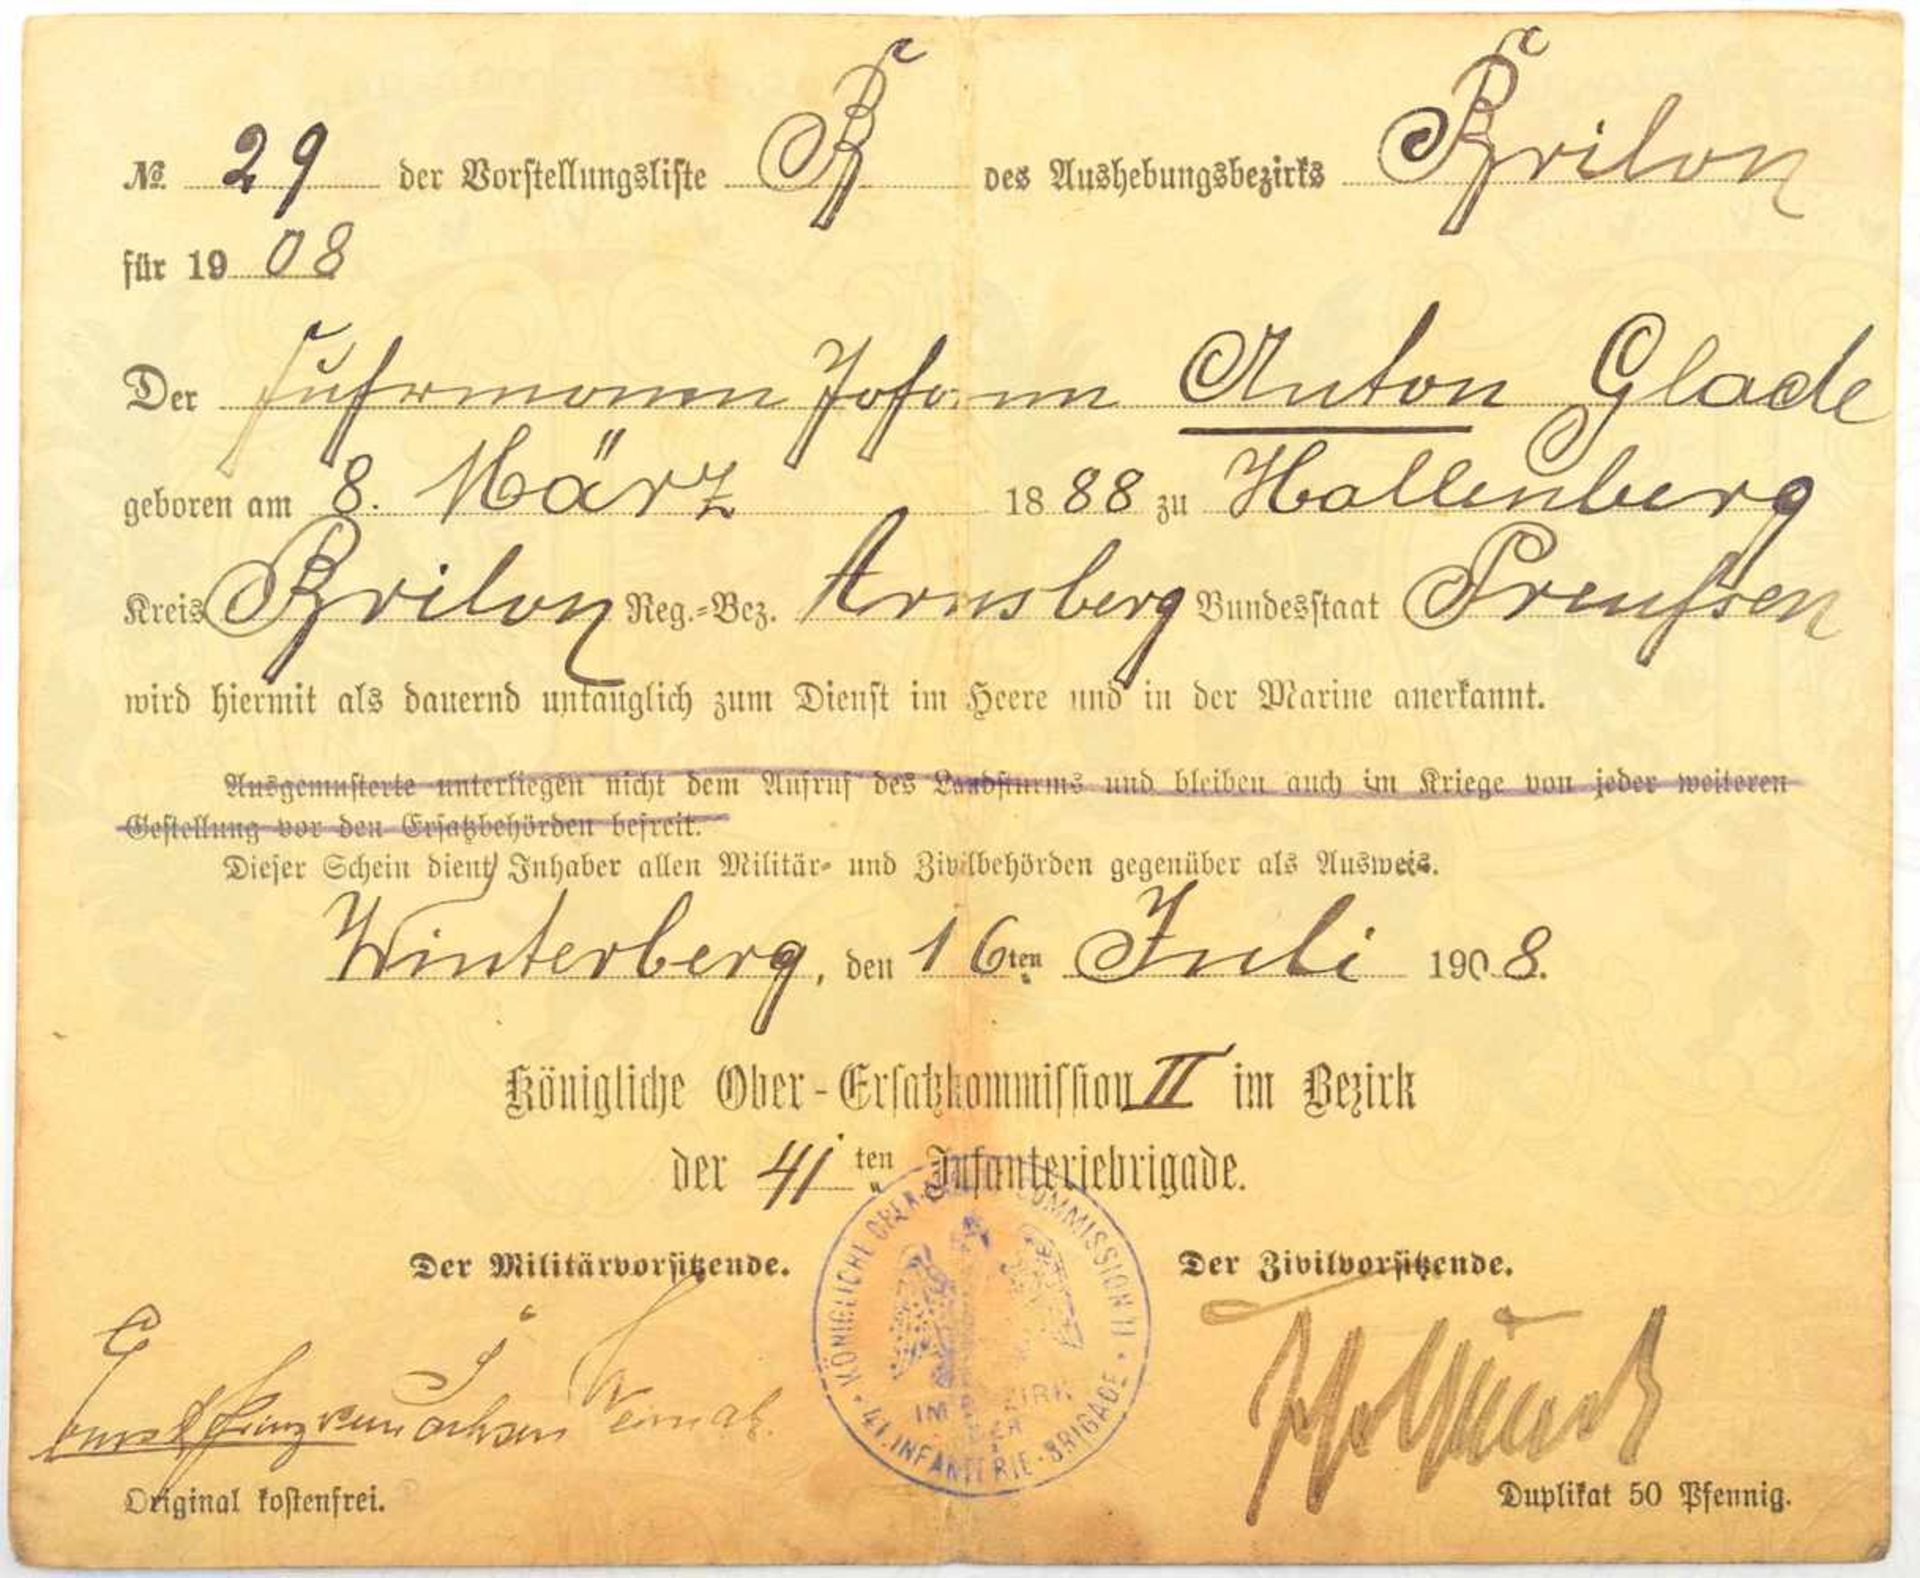 № 29 der Vorstellungsliste B des Aushebungsbezirks Brilon
für 19 08
Der Fuhrmann Johann Anton Glade
geboren am 8. März 1888 zu Hallenberg
Kreis Brilon Reg.=Bez. Arnsberg Bundesstaat Preußen
wird hiermit als dauernd untauglich zum Dienst im Heere und in der Marine anerkannt.
Ausgemusterte unterliegen nicht dem Aufruf des Landsturms und bleiben auch im Kriege von jeder weiteren
Gestellung vor den Ersatzbehörden befreit.
Dieser Schein dient Inhaber allen Militär- und Zivilbehörden gegenüber als Ausweis.
Winterberg, den 16ten Juli 1908.
Königliche Ober-Ersatzkommission II im Bezirk
der 41ten Infanteriebrigade.
Der Militärvorsitzende. Der Zivilvorsitzende.
KÖNIGLICHE OBER COMMISSION II
IM BEZIRK
DER
41. INFANTERIE-BRIGADE
Ernst Prinz von Sachsen Weimar
Original kostenfrei. Duplikat 50 Pfennig.